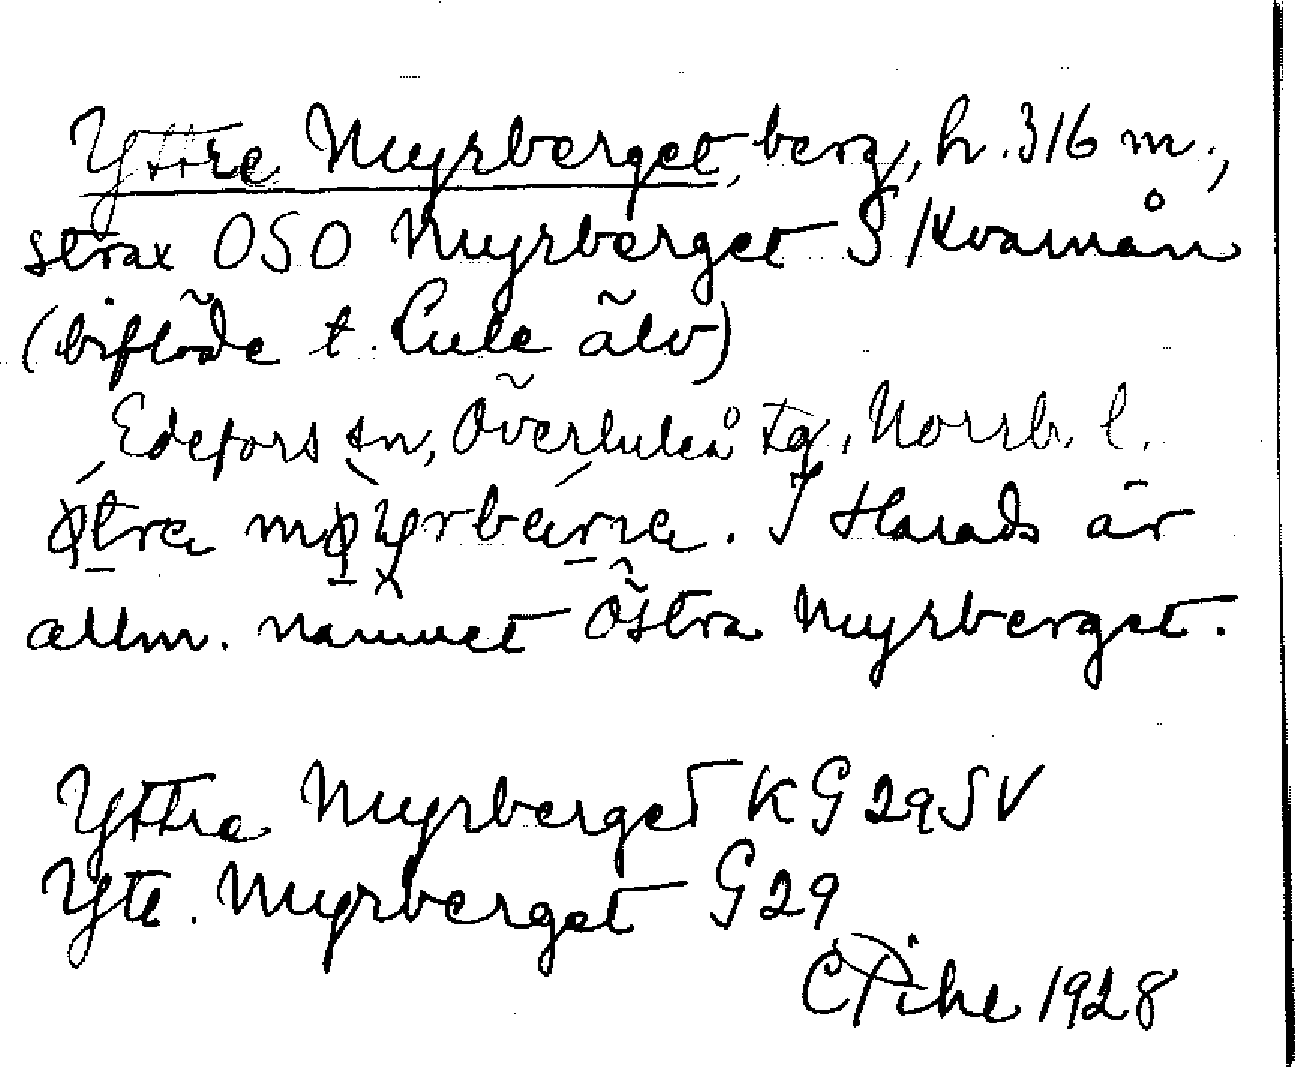 Yttre Myrberget, berg, h. 316 m.,
strax OSO Myrberget S Kvarnån
(biflöde t. Lule älv)
Edefors sn, Överluleå tg, Norrb. l.
ø̱tra mø̱yrbárna. I Harads är
allm. namnet Östra Myrberget.
Yttre Myrberget KG 29SV
Ytt. Myrberget G29
C Pihl 1928